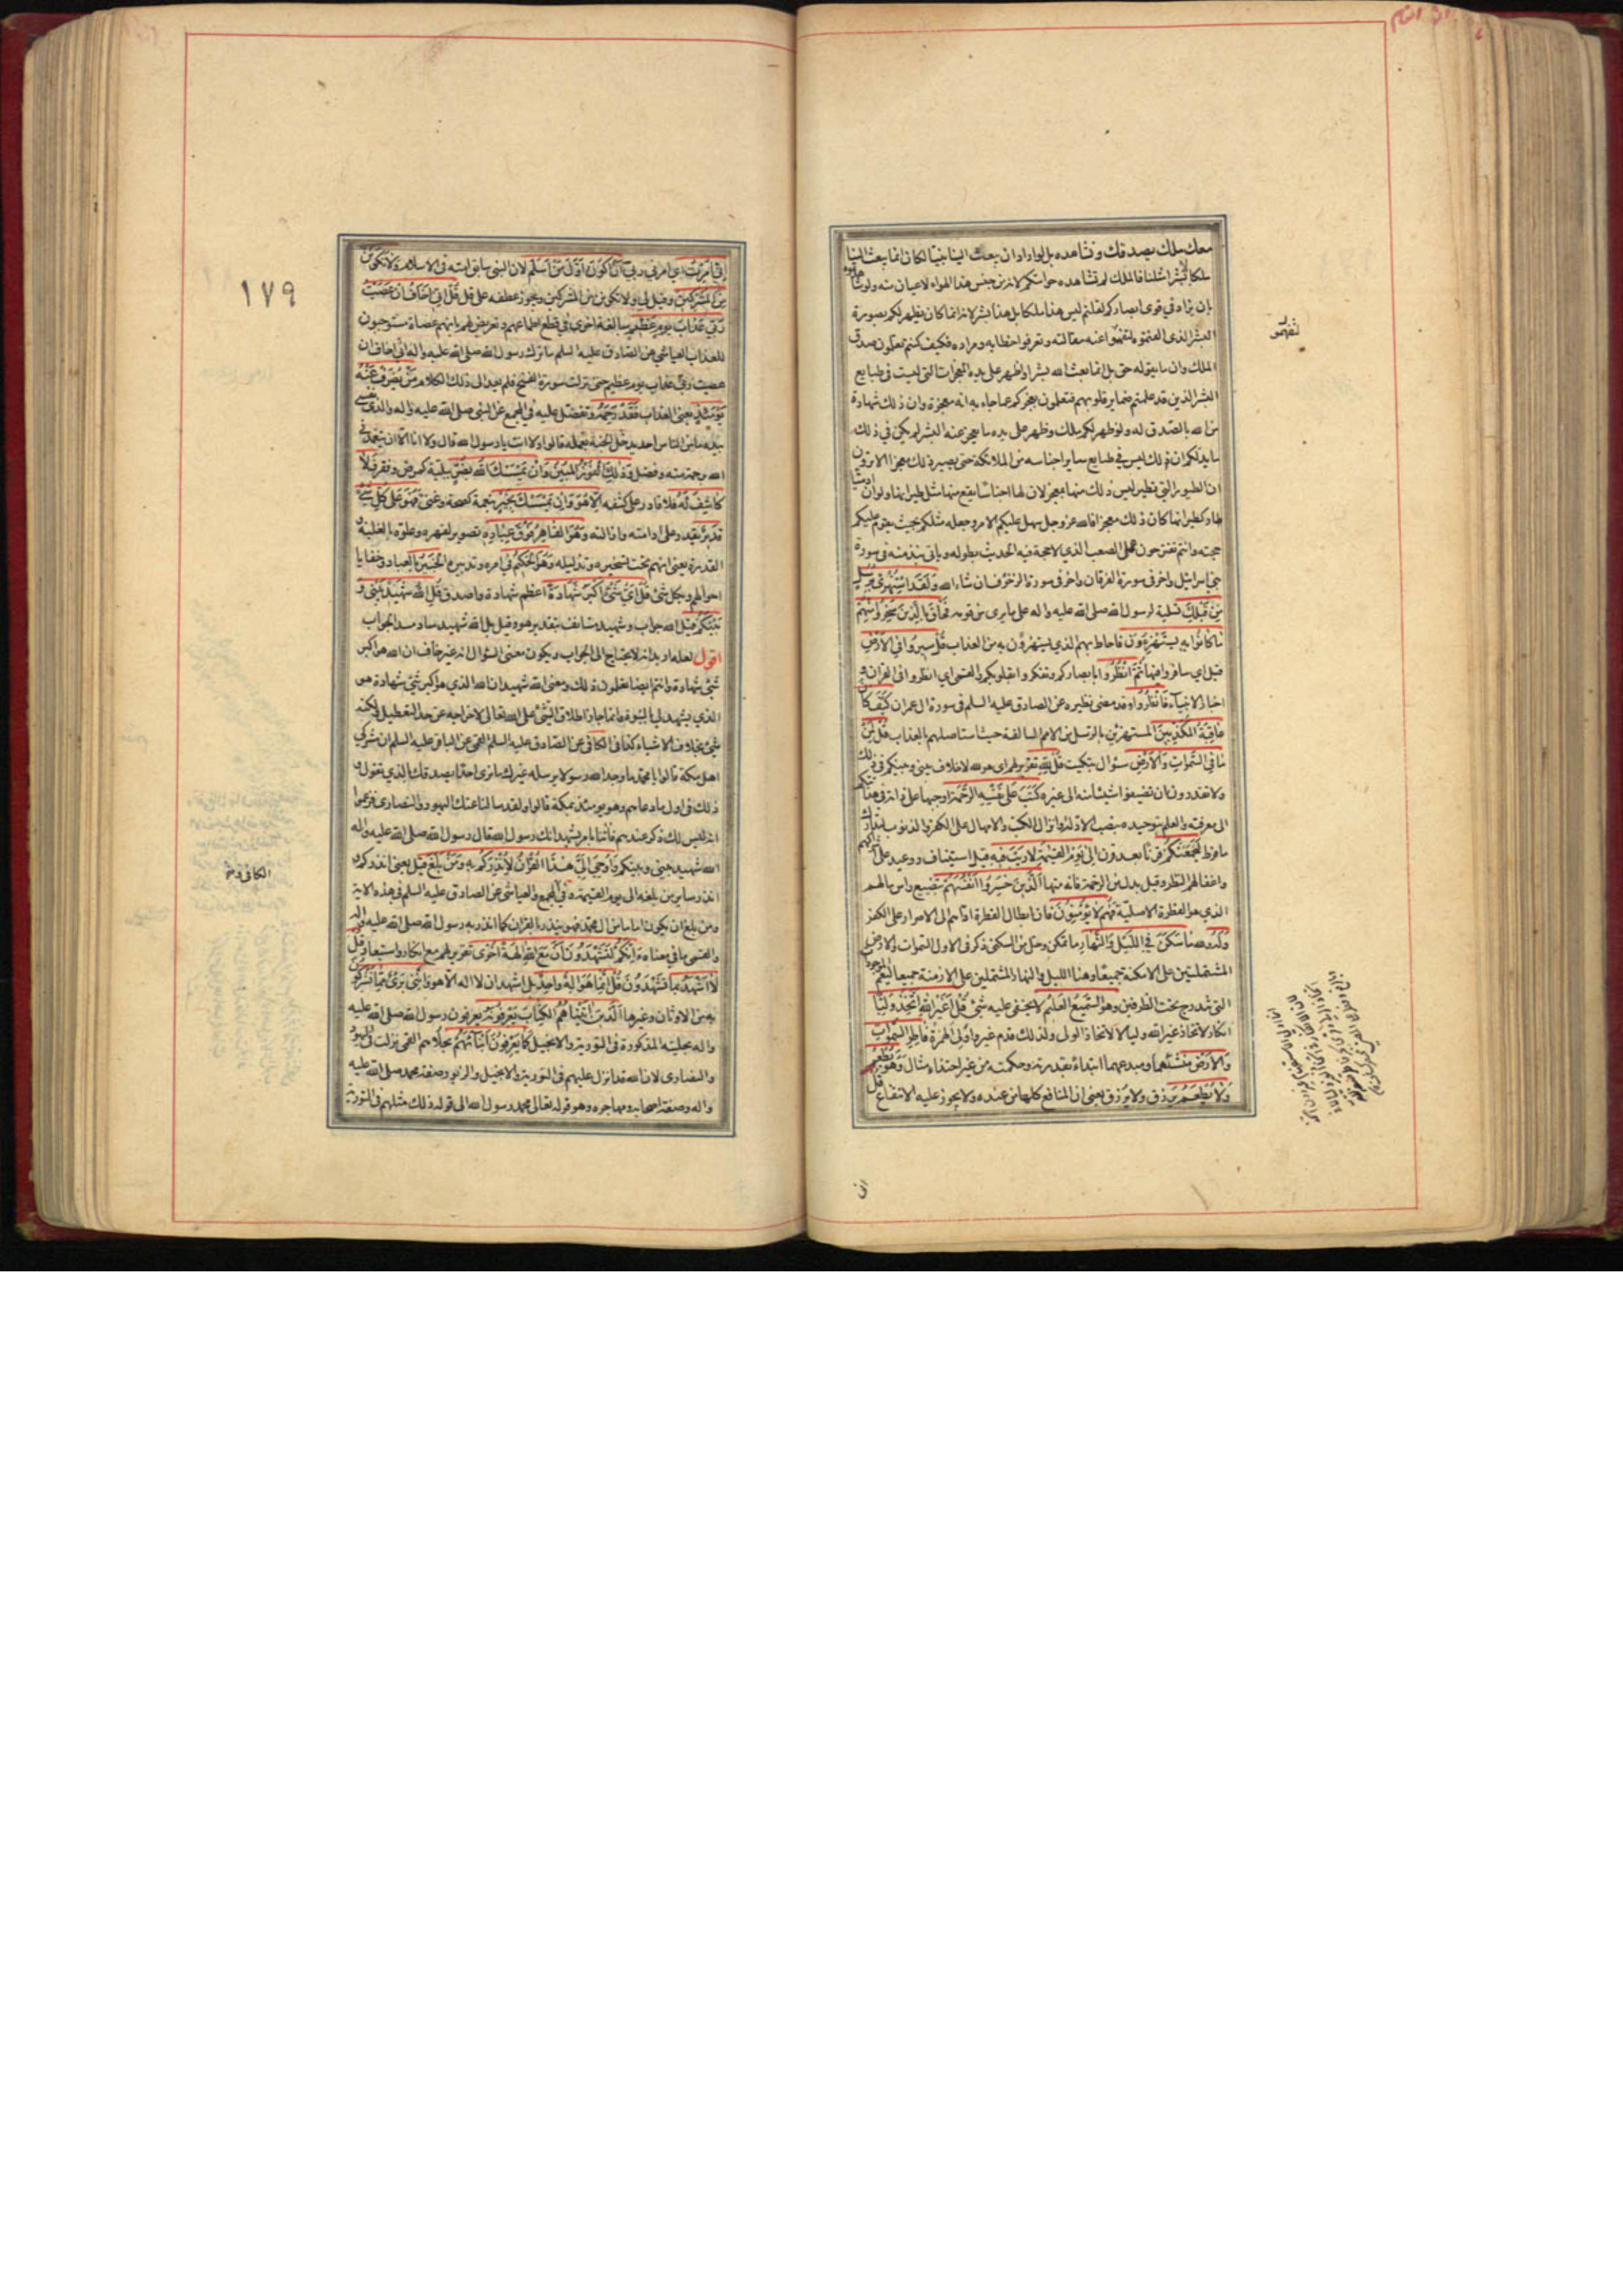 معك ملك يصدقك ونشاهده بل لو اراد ان يبعث الينا نبيا لكان انما يبعث الينا
ملكا لا بشرا مثلنا فالملك لم تشاهده حواسكم لانه من جنس هذا الهواء لا عيان منه ولو شاهدتموه
بان يزاد في قوى ابصاركم لقلتم ليس هذا ملكا بل هذا بشر لانه انما كان يظهر لكم بصورة
البشر الذي الفتموه لتفهموا عنه مقالته وتعرفوا خطابه ومراده فكيف كنتم تعلمون صدق
الملك وان ما يقوله حق بل انما بعث الله بشرا واظهر على يده المعجزات التي ليست في طبايع
البشر الذين قد علمتم ضماير قلوبهم فتعلمون بعجزكم عما جاء به انه معجزة وان ذلك شهادة
من الله بالصدق له ولو ظهر لكم ملك وظهر على يده ما يعجز عنه البشر لم يكن في ذلك
ما يدلكم ان ذلك ليس في طبايع ساير اجناسه من الملائكة حتى يصير ذلك معجزا الا ترون
ان الطيور التي تطير ليس ذلك منها بمعجز لان لها اجناسا يقع منها مثل طيرانها ولو ان ادميا
طار كطيرانها كان ذلك معجزا فالله عز وجل سهل عليكم الامر وجعله مثلكم بحيث يقوم عليكم
حجته وانتم تقترحون عمل الصعب الذي لا حجة فيه الحديث بطوله وياتي نبذ منه في سورة
بني اسرائيل واخر في سورة الفرقان واخر في سورة الزخرف ان شاء الله ولقد استهزئ برسل
من قبلك تسلية لرسول الله صلى الله عليه واله على ما يرى من قومه فحاق بالذين سخروا منهم
ما كانوا به يستهزؤن فاحاط بهم الذي يستهزؤن به من العذاب قل سيروا في الارض
قيل اي سافروا فيها ثم انظروا بابصاركم وتفكروا بقلوبكم والقمي اي انظروا في القران و
اخبار الانبياء فانظروا وقد مضى نظيره عن الصادق عليه السلم في سورة ال عمران كيف كان
عاقبة المكذبين المستهزئين بالرسل من الامم السالفة حيث استاصلهم بالعذاب قل لمن
ما في السموات والارض سئوال تبكيت قل لله تقرير لهم اي هو لله لا خلاف بيني وبينكم في ذلك
ولا تقدرون ان تضيفوا شيئا منه الى غيره كتب على نفسه الرحمة اوجبها على ذاته في هدايتكم
الى معرفته والعلم بتوحيده بنصب الادلة وانزال الكتب والامهال على الكفر والذنوب لتدارك
ما فرط ليجمعنكم قرنا بعد قرن الى يوم القيمة لا ريب فيه قيل استيناف ووعيد على شركهم
واغفالهم النظر وقيل بدل من الرحمة فانه منها الذين خسروا انفسهم بتضييع راس مالهم
الذي هو الفطرة الاصلية فهم لا يؤمنون فان ابطال الفطرة اداهم الى الاصرار على الكفر
وله ما سكن في الليل والنهار ما تمكن وحل من السكنى ذكر في الاول السموات والارض
المشتملتين على الامكنة جميعا وهنا الليل والنهار المشتملين على الازمنة جميعا ليعم الموجودات
التي تندرج تحت الظرفين وهو السميع العليم لا يخفى عليه شئ قل اغير الله اتخذ وليا
انكار لاتخاذ غير الله وليا لا لاتخاذ الولي ولذلك قدم غير واولى الهمزة فاطر السموات
والارض منشئهما ومبدعهما ابتداء بقدرته وحكمته من غير احتذاء مثال وهو يطعم
ولا يطعم يرزق ولا يرزق يعني ان المنافع كلها من عنده ولا يجوز عليه الانتفاع قل
اني
لتفهموا
١٧٩
اني امرت اي امرني ربي ان اكون اول من اسلم لان النبي سابق امته في الاسلام ولا تكونن
من المشركين وقيل لي ولا تكونن من المشركين ويجوز عطفه على قل قل اني اخاف ان عصيت
ربي عذاب يوم عظيم مبالغة اخرى في قطع اطماعهم وتعريض لهم بانهم عصاة مستوجبون
للعذاب العياشي عن الصادق عليه السلم ما ترك رسول الله صلى الله عليه واله اني اخاف ان
عصيت ربي عذاب يوم عظيم حتى نزلت سورة الفتح فلم يعد الى ذلك الكلام من يصرف عنه
يومئذ يعني العذاب فقد رحمه وتفضل عليه في المجمع عن النبي صلى الله عليه واله والذي نفسي
بيده ما من الناس احد يدخل الجنة بعمله قالوا ولا انت يا رسول الله قال ولا انا الا ان يتغمدني
الله برحمة منه وفضل وذلك الفوز المبين وان يمسسك الله بضر ببلية كمرض وفقر فلا
كاشف له فلا قادر على كشفه الا هو وان يمسسك بخير بنعمة كصحة وغنى فهو على كل شئ
قدير يقدر على ادامته وازالته وهو القاهر فوق عباده تصوير لقهره وعلوه بالغلبة و
القدرة يعني انهم تحت تسخيره وتذليله وهو الحكيم في امره وتدبيره الخبير بالعباد وخفايا
احوالهم وبكل شئ قل اي شئ اكبر شهادة اعظم شهادة واصدق قل الله شهيد بيني و
بينكم قيل الله جواب وشهيد مستانف بتقدير هو وقيل بل الله شهيد ساد مسد الجواب
اقول لعله اريد انه لا يحتاج الى الجواب ويكون معنى السؤال انه غير خاف ان الله هو اكبر
شئ شهادة وانتم ايضا تعلمون ذلك ومعنى الله شهيد ان الله الذي هو اكبر شئ شهادة هو
الذي يشهد لي بالنبوة فانما جاز اطلاق الشئ على الله تعالى لاخراجه عن حد التعطيل ولكنه
شئ بخلاف الاشياء كذا في الكافي عن الصادق عليه السلم القمي عن الباقر عليه السلم ان مشركي
اهل مكة قالوا يا محمد ما وجد الله رسولا يرسله غيرك ما نرى احدا يصدقك بالذي تقول و
ذلك في اول ما دعاهم وهو يومئذ بمكة قالوا ولقد سالنا عنك اليهود والنصارى فزعموا
انه ليس لك ذكر عندهم فأتنا بامر يشهد انك رسول الله قال رسول الله صلى الله عليه واله
الله شهيد بيني وبينكم واوحي الي هذا القران لانذركم به ومن بلغ قيل يعني انذركم و
انذر ساير من بلغه الى يوم القيمة وفي المجمع والعياشي عن الصادق عليه السلم في هذه الاية
ومن بلغ ان يكون اماما من ال محمد فهو ينذر بالقران كما انذر به رسول الله صلى الله عليه واله
والقمي ما في معناه ءانكم لتشهدون ان مع الله الهة اخرى تقرير لهم مع انكار واستبعاد قل
لا اشهد بما تشهدون قل انما هو اله واحد بل اشهد ان لا اله الا هو وانني برئ مما تشركون
به من الاوثان وغيرها الذين اتيناهم الكتاب يعرفونه يعرفون رسول الله صلى الله عليه
واله بحليته المذكورة في التورية والانجيل كما يعرفون ابنائهم بحلاهم القمي نزلت في اليهود
والنصارى لان الله قد انزل عليهم في التورية والانجيل والزبور صفة محمد صلى الله عليه
واله وصفة اصحابه ومهاجره وهو قوله تعالى محمد رسول الله الى قوله ذلك مثلهم في التورية